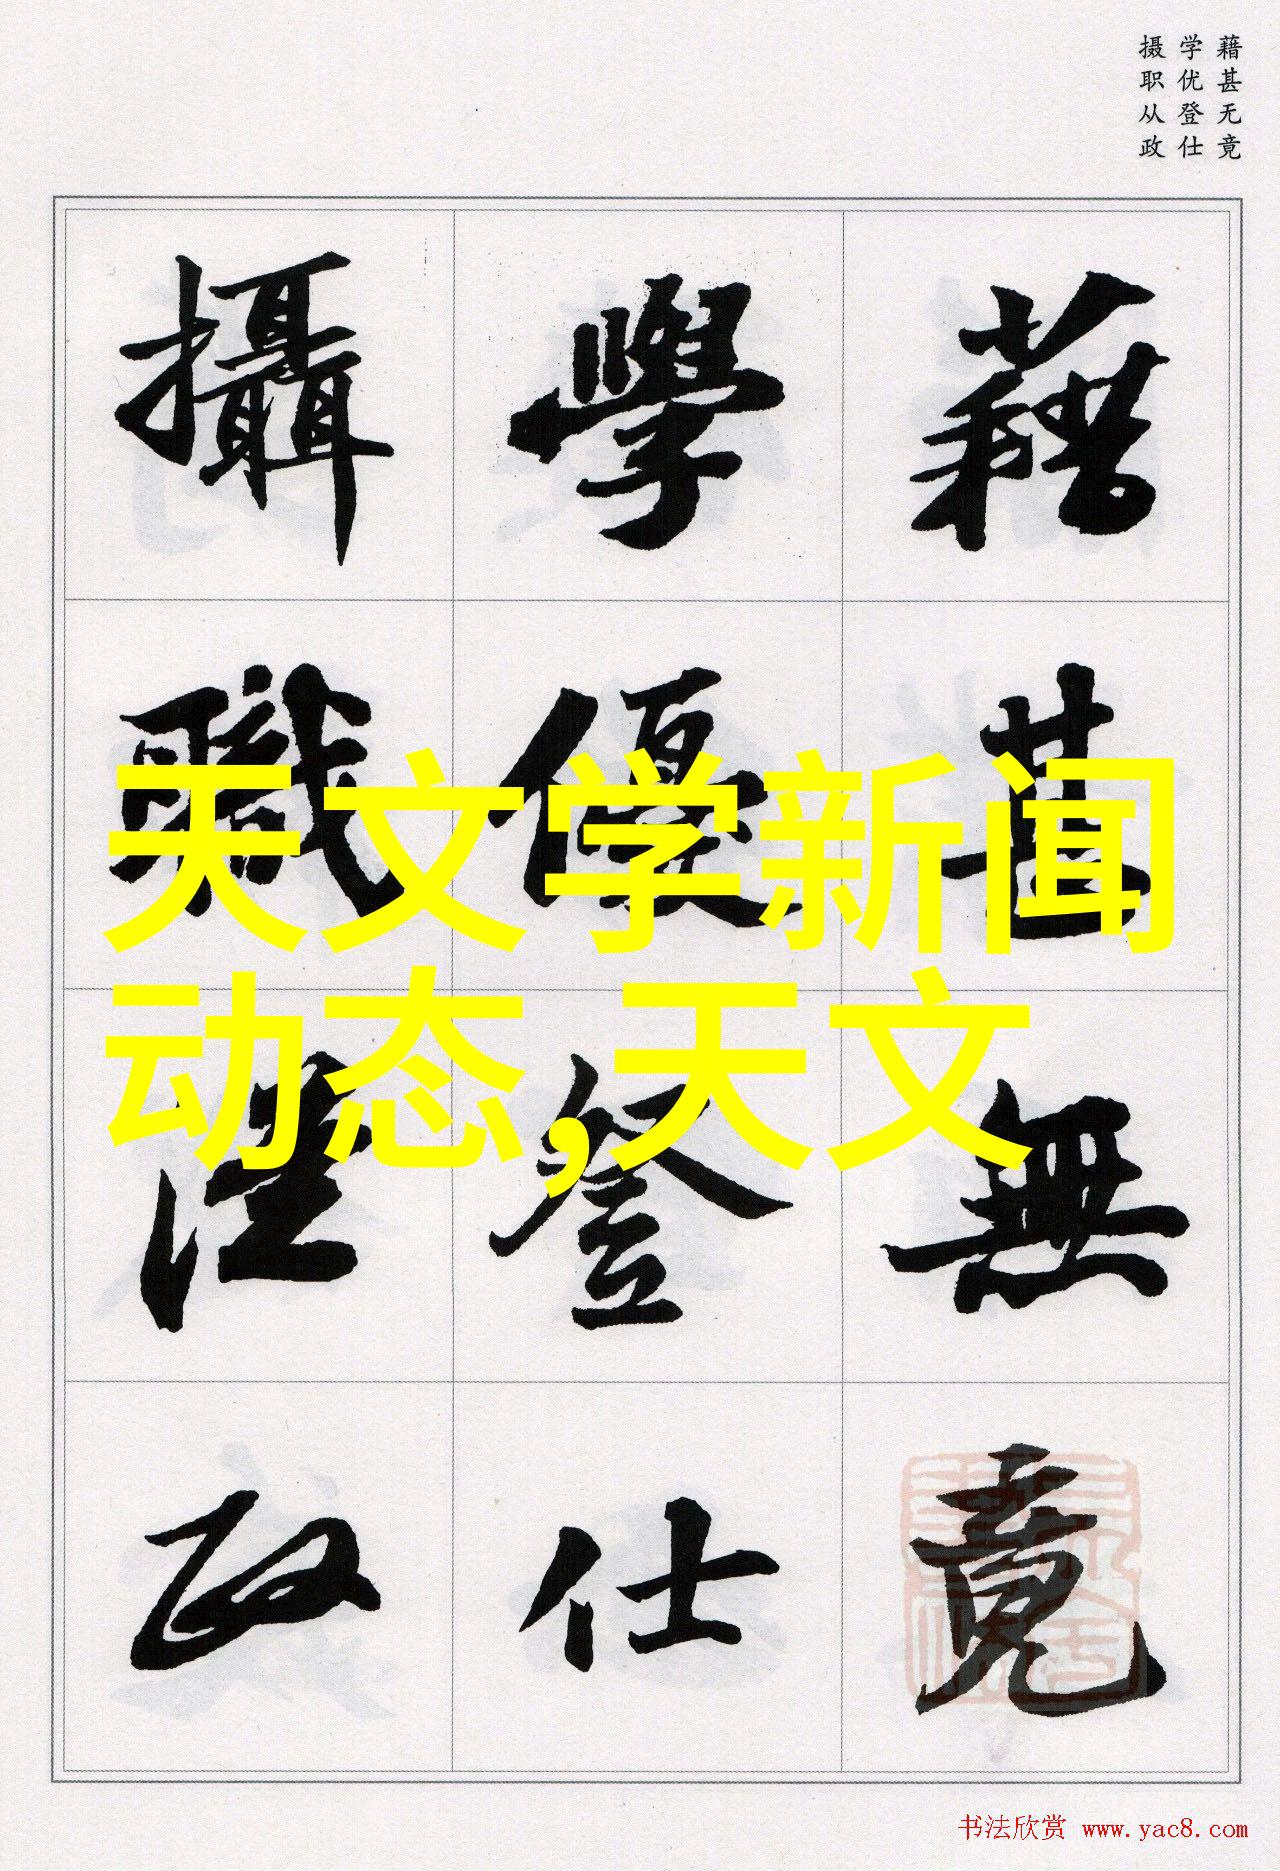 藉甚无竟
学优登仕
摄职从政
藉甚無竟
學優登仕
攝職從政
天文学新闻
动态,天文
书法欣赏 www.yac8.com